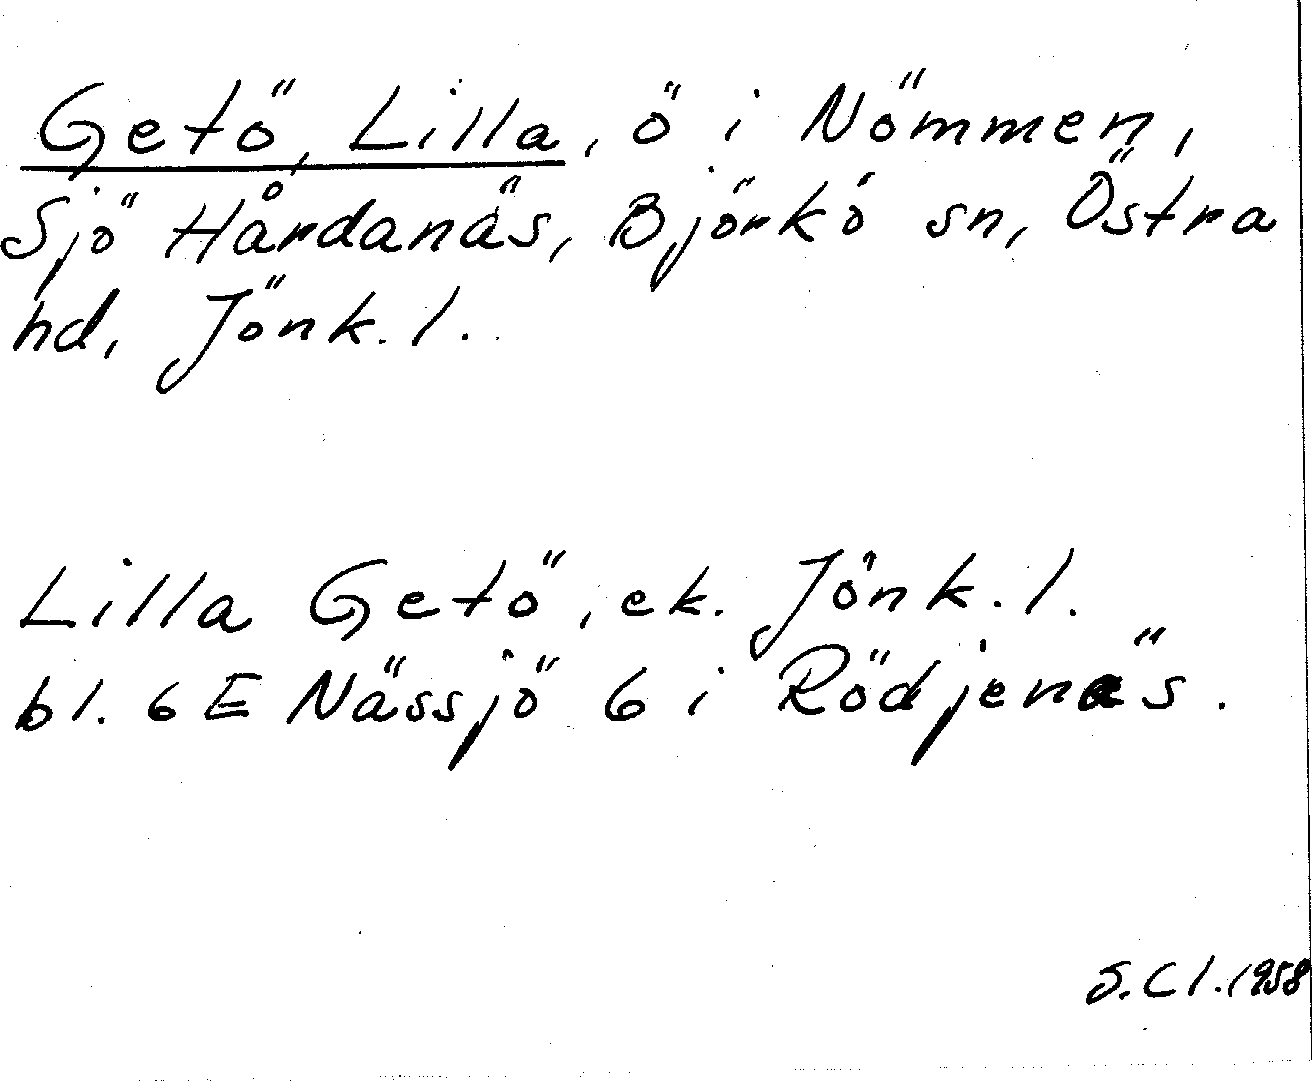 Getö, Lilla, ö i Nömmen,
Sjö Hårdanäs, Björkö sn, Östra
hd, Jönk. l.
Lilla Getö, ek. Jönk. l.
bl. 6 E Nässjö 6 i Rödjenäs.
S. Cl. 1958